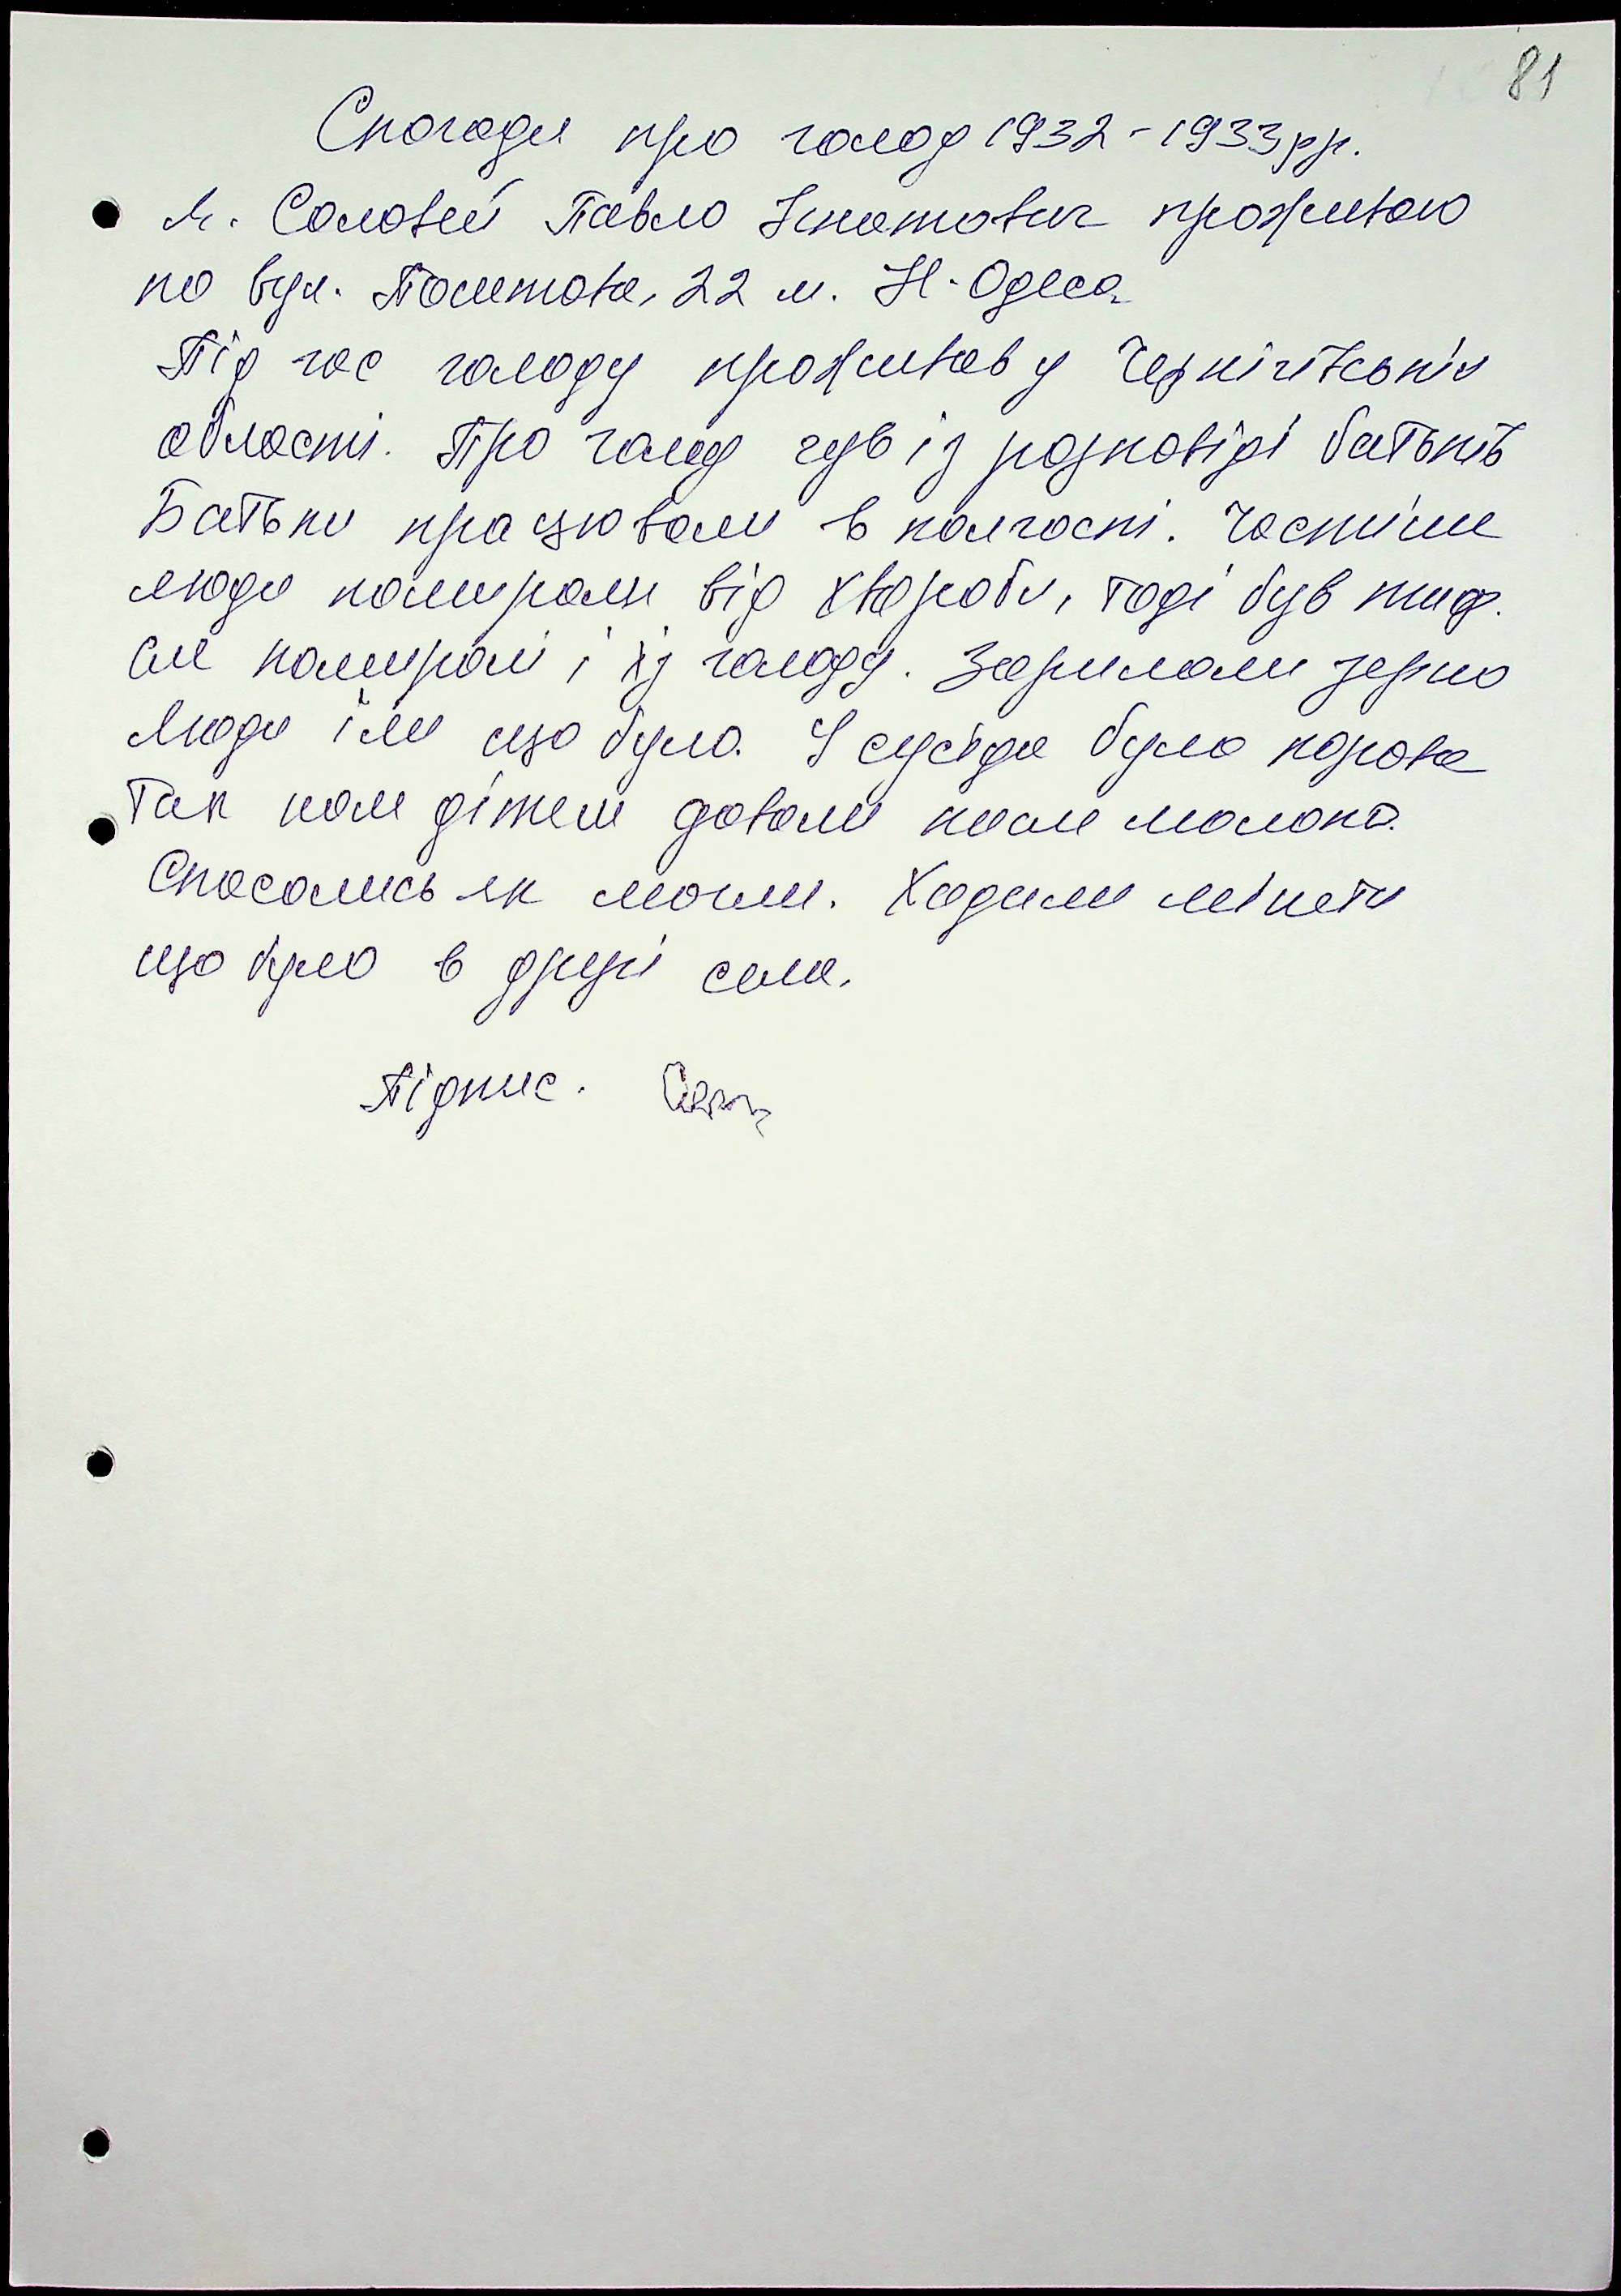 81
Спогади про голод 1932-1933рр.
Я. Соловей Павло Ігнатович проживаю
по вул. 22 м. Н-Одеса
Під час голоду проживав у Чернігівській
області. Про голод чув із розповіді батьків
Батьки працювали в колгоспі. Частіше
люди помирали від хвороби, тоді був тиф.
але помирали і із голоду. Забирали зерно
люди їли що було. У сусіда була корова
так нам дітям давали молока.
Спасались як могли. Ходили міняти
що було в другі села.
Підпис.